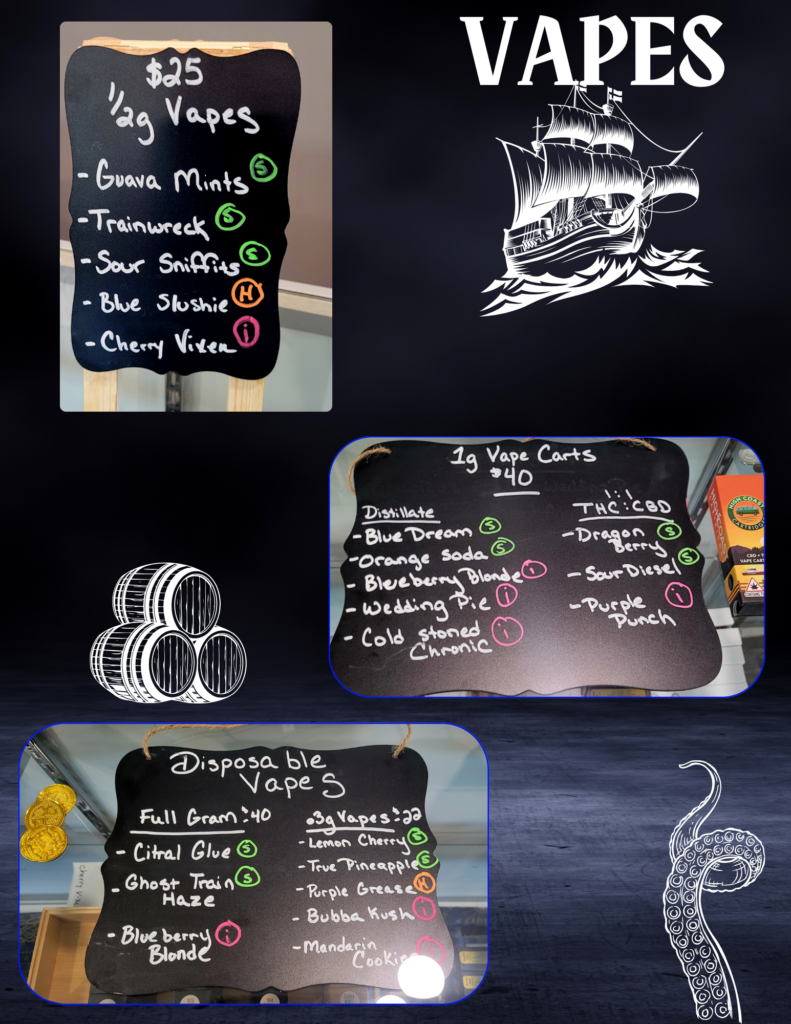 VAPES
$25
1/2g Vapes
- Guava Mints S
- Trainwreck S
- Sour Sniffits S
- Blue Slushie H
- Cherry Vixen i
1g Vape Carts
$40
Distillate
- Blue Dream S
- Orange Soda S
- Blueberry Blonde i
- Wedding Pie i
- Cold stoned i
Chronic
1:1
THC:CBD
- Dragon S
Berry
- Sour Diesel S
- Purple i
Punch
HIGH COAST
CARTRIDGE
Disposable
Vapes
Full Gram $40
- Citral Glue S
- Ghost Train S
Haze
- Blueberry i
Blonde
.3g Vapes $22
- Lemon Cherry S
- True Pineapple S
- Purple Grease H
- Bubba Kush i
- Mandarin i
Cookies